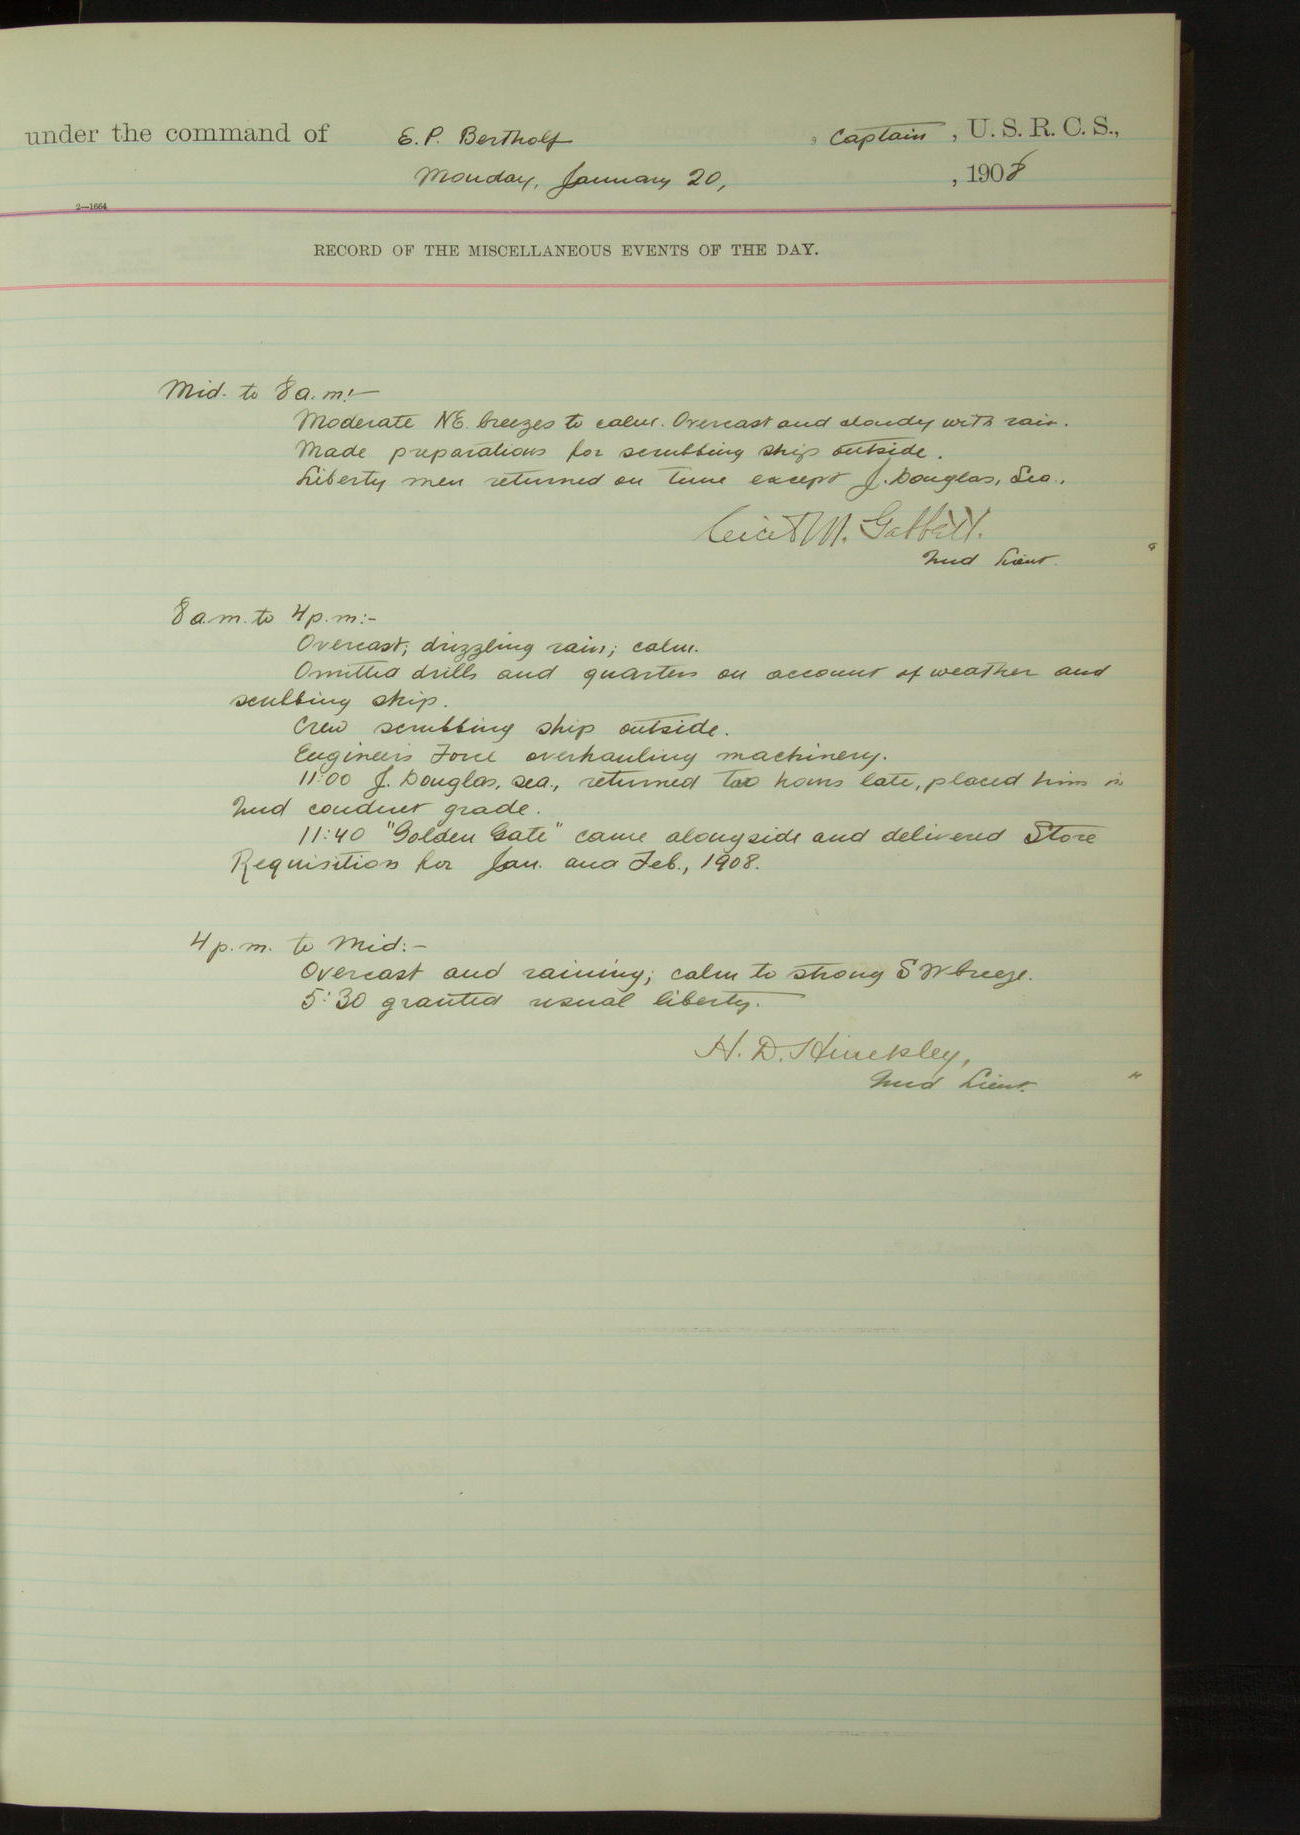 under the command of E. P. Bertholf, Captain, U. S. R. C. S.,
Monday, January 20, , 1908
2—1664
RECORD OF THE MISCELLANEOUS EVENTS OF THE DAY.
Mid. to 8 a.m:—
Moderate NE. breezes to calm. Overcast and cloudy with rain.
Made preparations for scrubbing ship outside.
Liberty men returned on time except J. Douglas, Sea.,
M. Gabbett.
2nd Lieut.
8 a.m. to 4 p.m:-
Overcast; drizzling rain; calm.
Omitted drills and quarters on account of weather and
scubbing ship.
Crew scrubbing ship outside.
Engineers Force overhauling machinery.
11:00 J. Douglas, sea., returned two hours late, placed him in
2nd conduct grade.
11:40 "Golden Gate" came alongside and delivered Store
Requisition for Jan. and Feb., 1908.
4 p.m. to Mid:-
Overcast and raining; calm to strong SW breeze.
5:30 granted usual liberty.
H. D. Hinckley,
2nd Lieut.